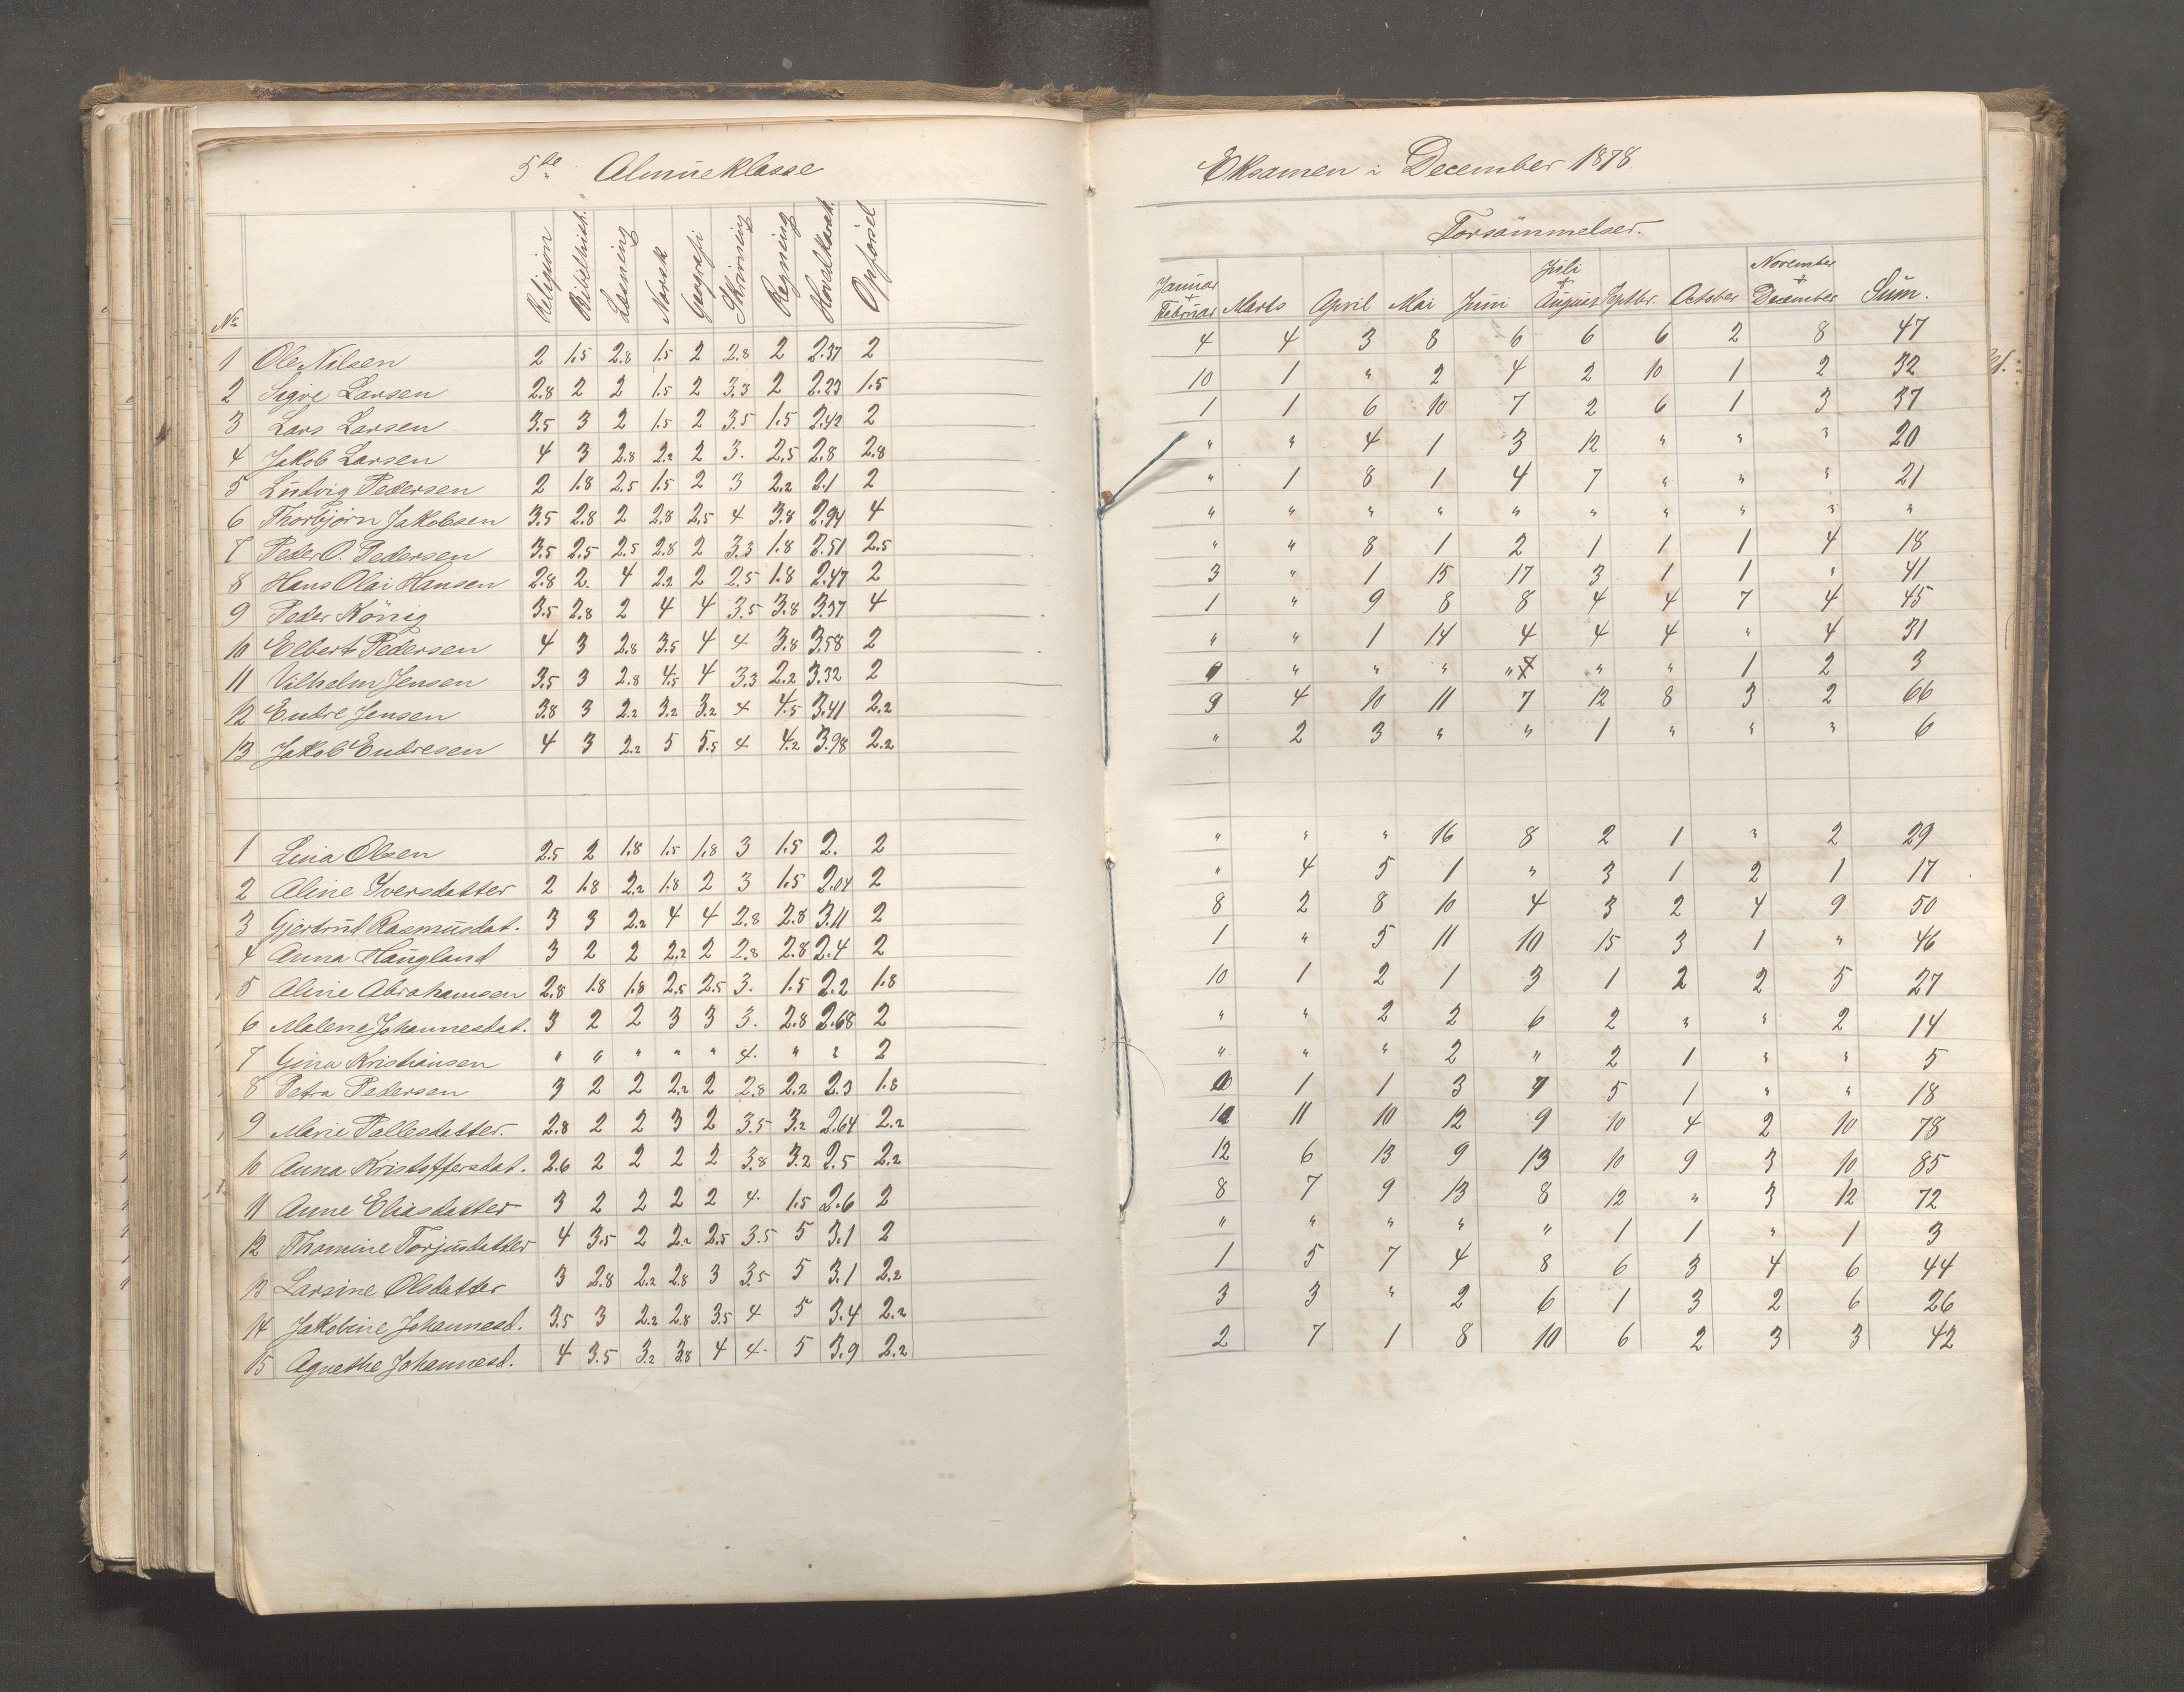 5te Almueklasse
No Religion Bibelhist. Læsning Norsk Geografi Skrivning Regning Hovedkarak. Opførsel
1 Ole Nilsen 2 1.5 2.8 1.5 2 2.8 2 2.37 2
2 Sigve Larsen 2.8 2 2 1.5 2 3.3 2 2.23 1.5
3 Lars Larsen 3.5 3 2 1.5 2 3.5 1.5 2.42 2
4 Jakob Larsen 4 3 2.8 2.2 2 3. 2.5 2.8 2.8
5 Ludvig Pedersen 2 1.8 2.5 1.5 2 3 2.2 2.1 2
6 Thorbjørn Jakobsen 3.5 2.8 2 2.8 2.5 4 3.8 2.94 4
7 Peder O. Pedersen 3.5 2.5 2.5 2.8 2 3.3 1.8 2.51 2.5
8 Hans Olai Hansen 2.8 2. 4 2.2 2 2.5 1.8 2.47 2
9 Peder König 3.5 2.8 2 4 4 3.5 3.8 3.37 4
10 Elbert Pedersen 4 3 2.8 3.5 4 4 3.8 3.58 2
11 Vilhelm Jensen 3.5 3 2.8 4.5 4 3.3 2.2 3.32 2
12 Endre Jensen 3.8 3 2.2 3.2 3.2 4 4.5 3.41 2.2
13 Jakob Endresen 4 3 2.2 5 5.5 4 4.2 3.98 2.2
1 Lina Olsen 2.5 2 1.8 1.5 1.8 3 1.5 2. 2
2 Aline Iversdatter 2 1.8 2.2 1.8 2 3 1.5 2.04 2
3 Gjertrud Rasmusdat. 3 3 2.2 4 4 2.8 2.8 3.11 2
4 Anna Haugland 3 2 2 2.2 2 2.8 2.8 2.4 2
5 Aline Abrahamsen 2.8 1.8 1.8 2.5 2.5 3. 1.5 2.2 1.8
6 Malena Johannesdat. 3 2 2 3 3 3. 2.8 2.68 2
7 Gina Kristiansen " " " " " 4. " " 2
8 Petra Pedersen 3 2 2 2.2 2 2.8 2.2 2.3 1.8
9 Marie Pallesdatter. 2.8 2 2 3 2 3.5 3.2 2.64 2.2
10 Anna Kristoffersdat. 2.6 2 2 2 2 3.8 3.2 2.5 2.2
11 Anne Eliasdatter 3 2 2 2 2 4. 1.5 2.6 2
12 Thomine Torjusdatter 4 3.5 2 2.2 2.5 3.5 5 3.1 2
13 Larsine Olsdatter 3 2.8 2.2 2.8 3 3.5 5 3.1 2.2
14 Jakobine Johannesd. 3.5 3 2.2 2.8 3.5 4 5 3.4 2.2
15 Agnethe Johannesd. 4 3.5 3.2 3.8 4 4. 5 3.9 2.2
Eksamen i December 1878.
Forsømmelser.
Januar + Februar Marts April Mai Juni Juli + August Septbr. October November + December Sum.
4 4 3 8 6 6 6 2 8 47
10 1 " 2 4 2 10 1 2 32
1 1 6 10 7 2 6 1 3 37
" " 4 1 3 12 " " " 20
" 1 8 1 4 7 " " " 21
" " " " " " " " " "
" " 8 1 2 1 1 1 4 18
3 " 1 15 17 3 1 1 " 41
1 " 9 8 8 4 4 7 4 45
" " 1 14 4 4 4 " 4 31
" " " " " " 1 2 3
9 4 10 11 7 12 8 3 2 66
" 2 3 " " 1 " " " 6
" " " 16 8 2 1 " 2 29
" 4 5 1 " 3 1 2 1 17
8 2 8 10 4 3 2 4 9 50
1 " 5 11 10 15 3 1 " 46
10 1 2 1 3 1 2 2 5 27
" " 2 2 6 2 " " 2 14
" " " 2 " 2 1 " " 5
1 1 3 7 5 1 " " 18
10 11 10 12 9 10 4 2 10 78
12 6 13 9 13 10 9 3 10 85
8 7 9 13 8 12 " 3 12 72
" " " " " 1 1 " 1 3
1 5 7 4 8 6 3 4 6 44
3 3 " 2 6 1 3 2 6 26
2 7 1 8 10 6 2 3 3 42